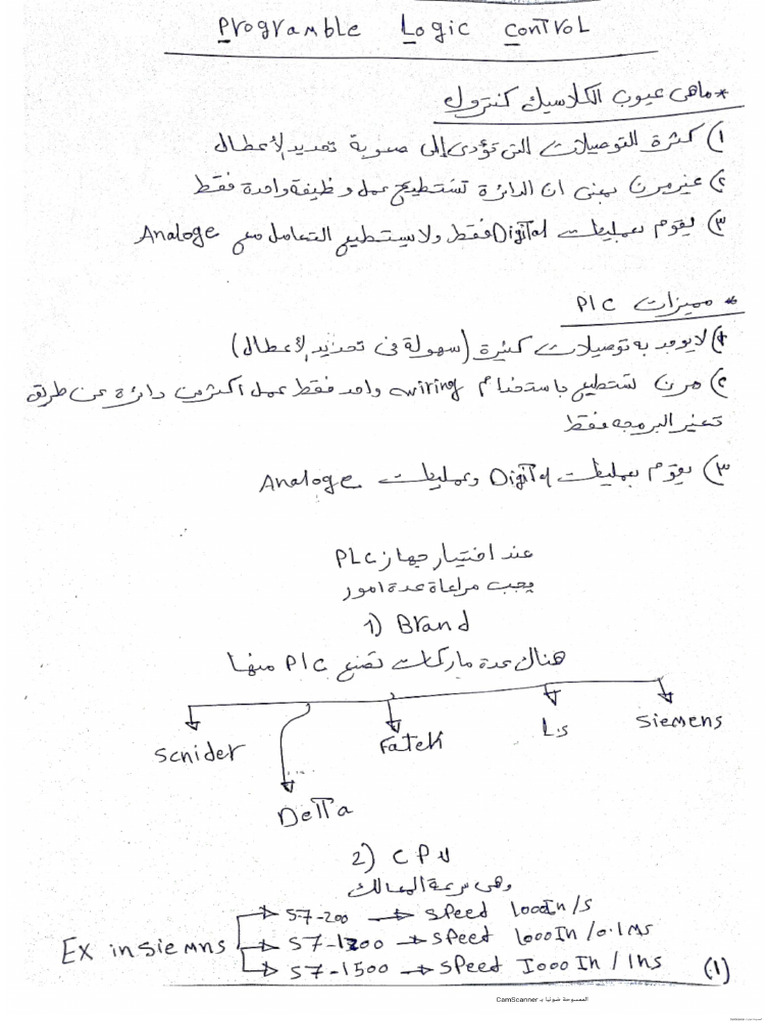 Programble Logic Control
* ماهى عيوب الكلاسيك كنترول
١) كثرة التوصيلات التى تؤدى إلى صعوبة تحديد الأعطال
٢) غير مرن بمعنى ان الدائرة تستطيع عمل وظيفة واحدة فقط
٣) يقوم بعمليات Digital فقط ولا يستطيع التعامل مع Analoge
* مميزات PLC
١) لا يوجد به توصيلات كثيرة (سهولة فى تحديد الأعطال)
٢) مرن تستطيع باستخدام wiring واحد فقط عمل اكثر من دائرة عن طريق
تغير البرمجه فقط
٣) يقوم بعمليات Digital وعمليات Analoge
عند اختيار جهاز PLC
يجب مراعاة عدة امور
1) Brand
هناك عدة ماركات تصنع PLC منها
Siemens
Ls
Fatek
Scnider
Delta
2) CPU
وهى سرعة المعالك
S7-200 → speed 1000In/s
Ex in siemns S7-1200 → speed 1000In/0.1Ms
S7-1500 → speed 1000In/1ns
(1)
الممسوحة ضوئيا بـ CamScanner